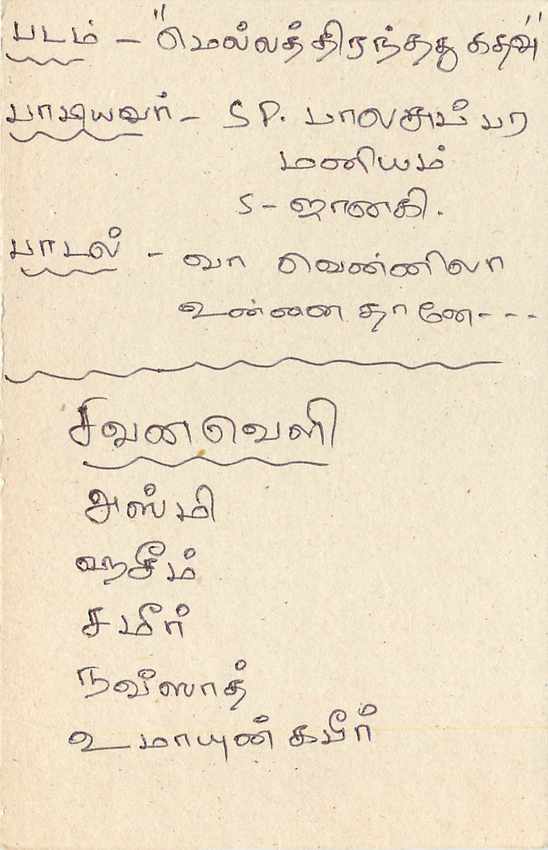 படம் - "மெல்லத்திரந்தது கதவு"
பாடியவர் - SP. பாலசுப்பர
மனியம்
S - ஜானகி.
பாடல் - வா வெண்னிலா
உன்னை தானே- - -
சிவனவெளி
அஸ்மி
ஹசீம்
சமீர்
நவீஸாத்
உமாயுன் கபீர்